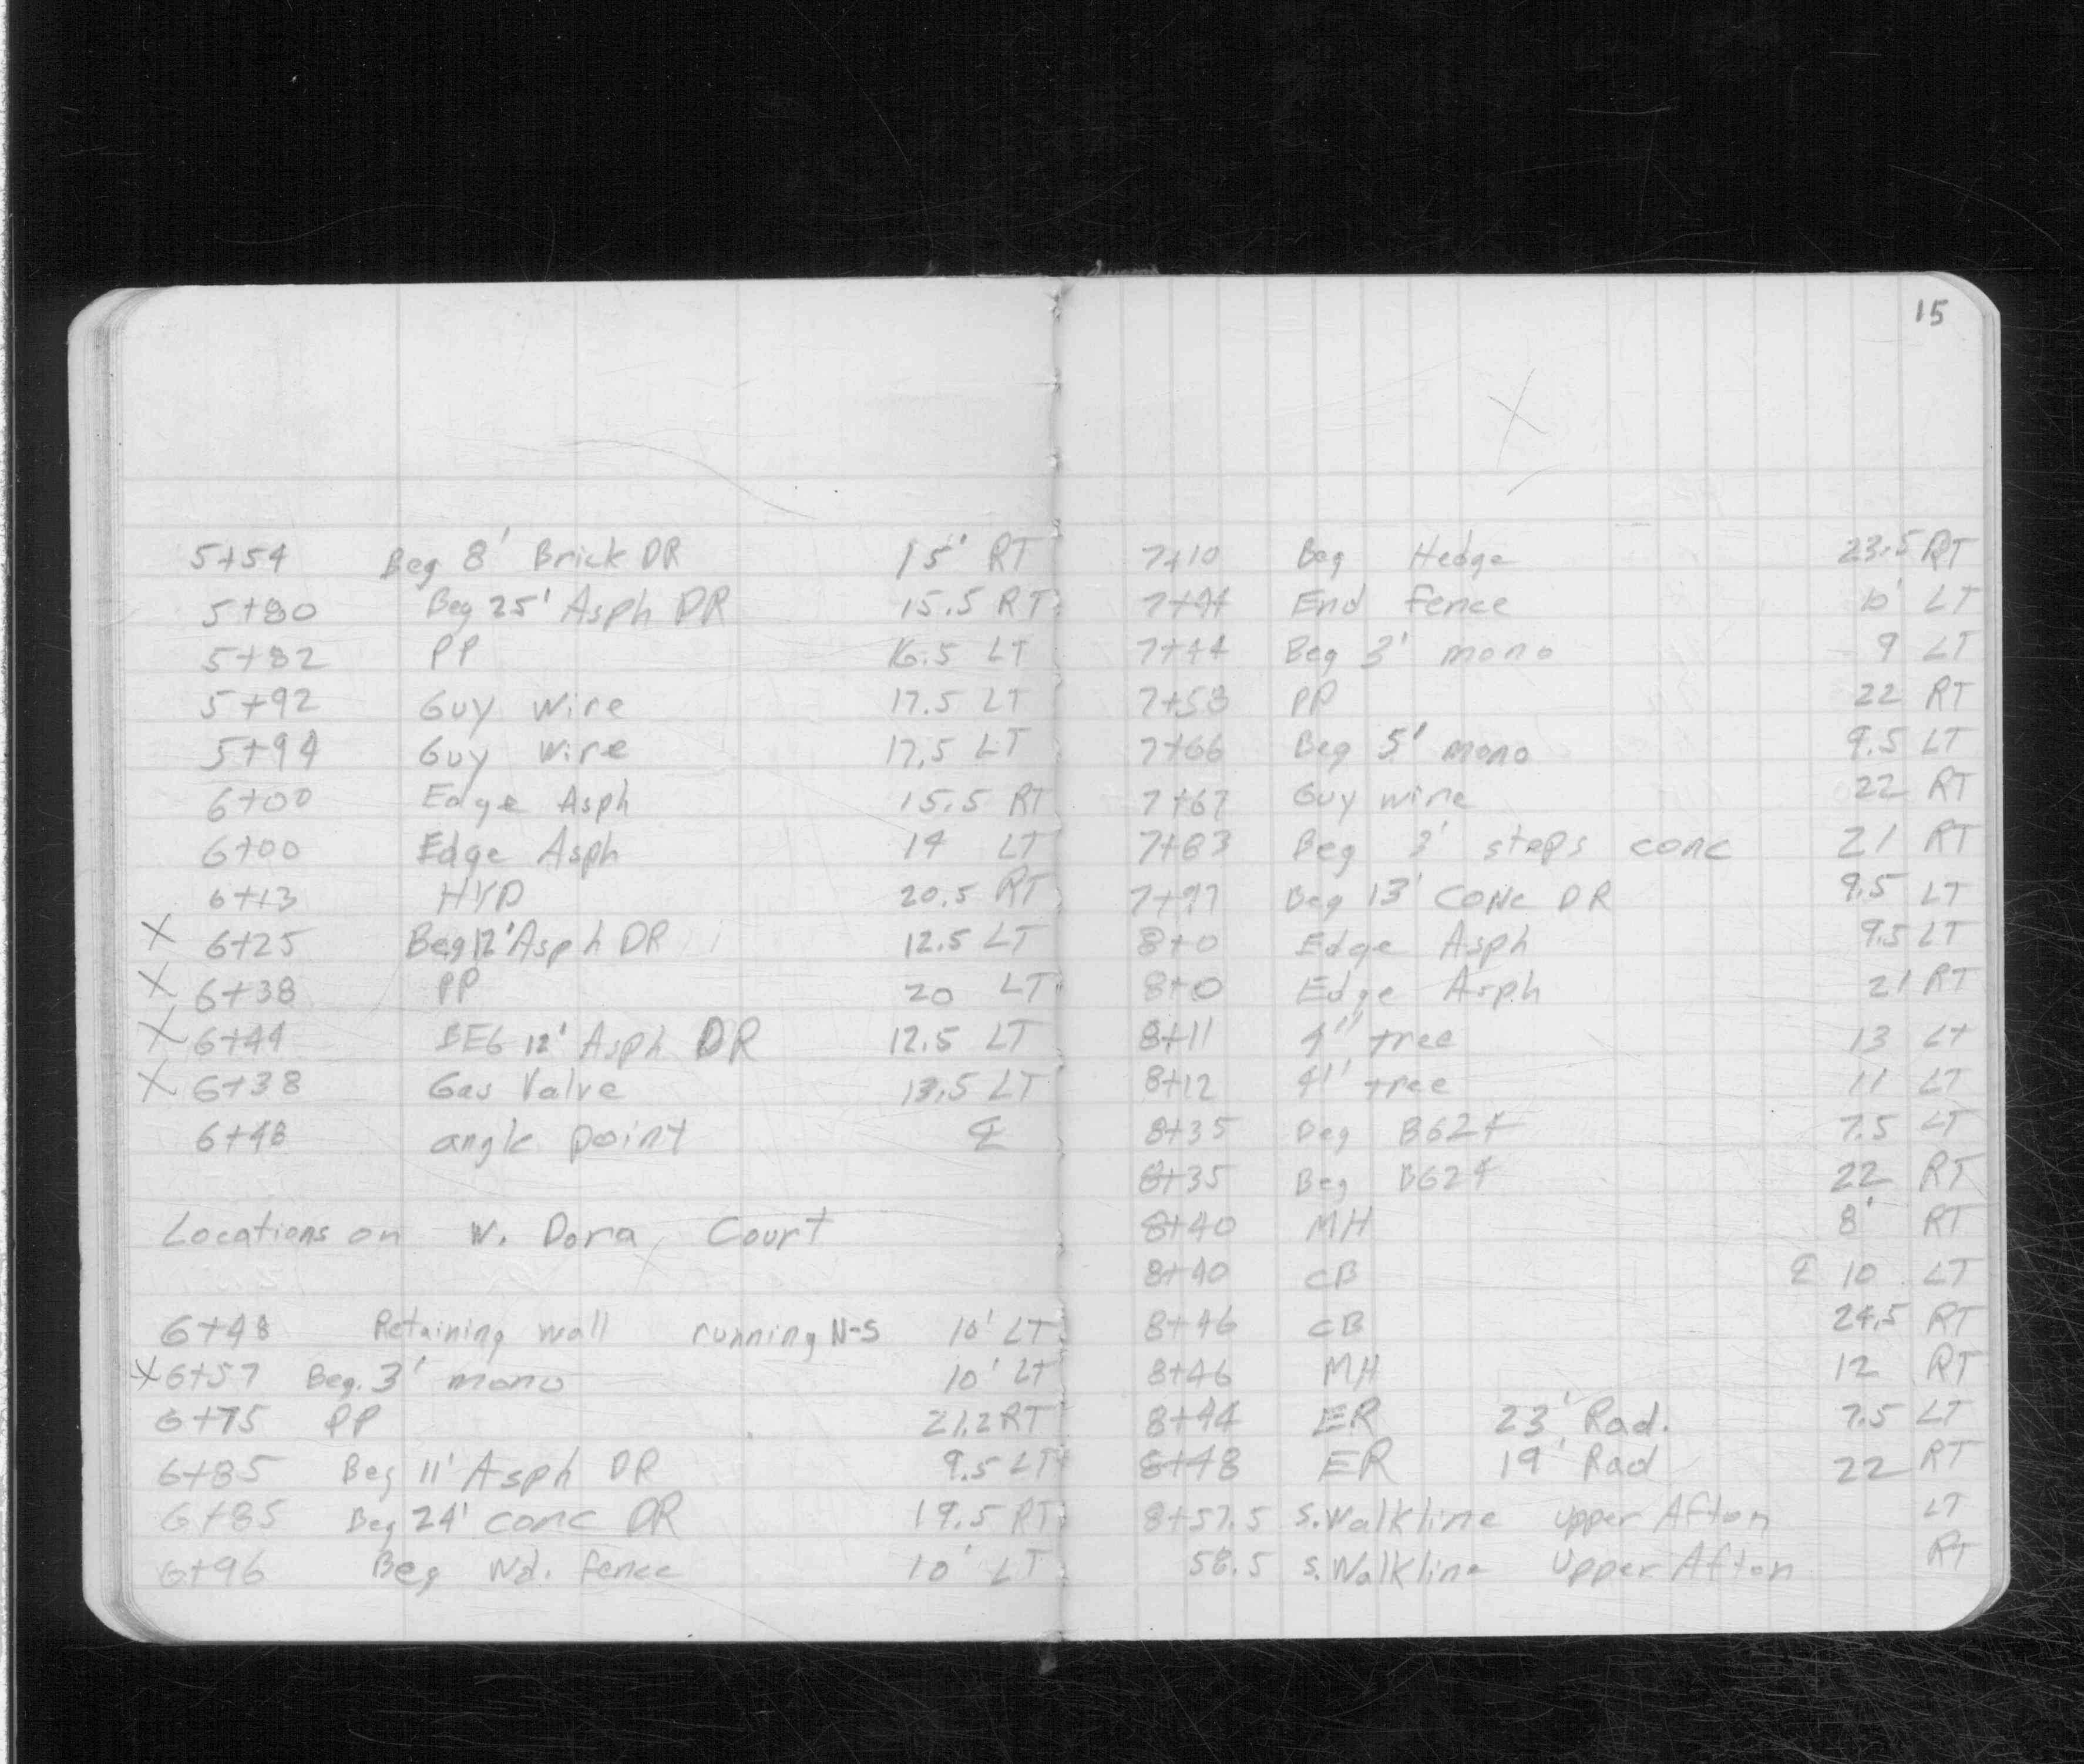 5+54 Beg 8' Brick DR 15' RT
5+80 Beg 25' Asph DR 15.5 RT
5+82 PP 16.5 LT
5+92 Guy wire 17.5 LT
5+94 Guy wire 17.5 LT
6+00 Edge Asph 15.5 RT
6+00 Edge Asph 14 LT
6+13 HYD 20.5 RT
X 6+25 Beg 12' Asph DR 12.5 LT
X 6+38 PP 20 LT
X 6+44 BEG 12' Asph DR 12.5 LT
X 6+38 Gas Valve 13.5 LT
6+48 angle point ℄
Locations on W. Dora Court
6+48 Retaining wall running N-S 10' LT
X 6+57 Beg. 3' mono 10' LT
6+75 PP 21.2 RT
6+85 Beg 11' Asph DR 9.5 LT
6+85 Beg 24' conc DR 19.5 RT
6+96 Beg Wd. fence 10' LT
15
X
7+10 Beg Hedge 23.5 RT
7+44 End fence 10' LT
7+44 Beg 3' mono 9 LT
7+58 PP 22 RT
7+66 Beg 5' mono 9.5 LT
7+67 Guy wire 22 RT
7+83 Beg steps conc 21 RT
7+97 Beg 13' CONC DR 9.5 LT
8+0 Edge Asph 9.5 LT
8+0 Edge Asph 21 RT
8+11 4" tree 13 Lt
8+12 4" tree 11 LT
8+35 Beg B624 7.5 LT
8+35 Beg B624 22 RT
8+40 MH 8' RT
8+40 CB ℄ 10 LT
8+46 CB 24.5 RT
8+46 MH 12 RT
8+44 ER 23' Rad. 7.5 LT
8+48 ER 19' Rad 22 RT
8+57.5 S. Walkline Upper Afton LT
58.5 S. Walkline Upper Afton RT